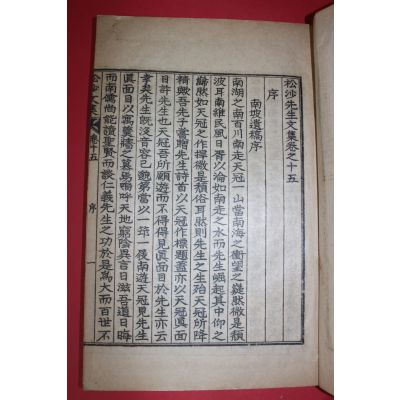 松沙先生文集卷之十五
序
南坡遺稿序
南湖之南百川南走天冠一山當南海之衝望之嶷然微是頹
波耳南維民風日胥以淪如南走之水而先生崛起其中仰之
巋然如天冠之作撑微是頹俗耳然則先生之生殆天冠所降
精歟吾先子嘗贈先生詩首以天冠作標題蓋亦以天冠眞面
目許先生也天冠吾所願遊而不得得見眞面目於先生亦云
幸矣先生旣沒音容已邈第當以一笻一後南遊天冠見先生
眞面目以寓羹墻之慕焉嗚呼天地窮陰異言日滋吾道日晦
而南儒尙能讀聖賢而談仁義先生之功於是爲大而百世不
松沙文集 卷十五 序 一